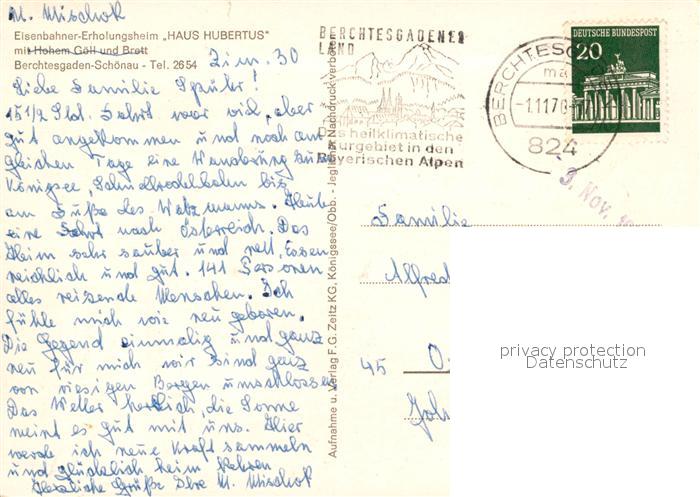 M. Mischok
Eisenbahner-Erholungsheim „HAUS HUBERTUS"
mit Hohem Göll und Brett
Berchtesgaden-Schönau - Tel. 2654
Zim. 30
Liebe Familie
15 1/2 Std. Fahrt war viel, aber
gut angekommen und noch am
gleichen Tage eine Wanderung zum
Königsee, Schnellrodelbahn bis
am Fuße des Watzmanns. Heute
eine Fahrt nach Österreich. Das
Heim sehr sauber und nett, Essen
reichlich und gut. 141 Personen
alles reizende Menschen. Ich
fühle mich wie neu geboren.
Die Gegend einmalig und ganz
neu für mich wir sind ganz
von riesigen Bergen umschlossen
Das Wetter herrlich, die Sonne
meint es gut mit uns. Hier
werde ich neue Kraft sammeln
und glücklich heim kehren
Herzliche Grüße Ihre M. Mischok
Aufnahme u. Verlag F.G. Zeitz KG, Königssee/Obb. - Jeglicher Nachdruck verboten
BERCHTESGADENER
LAND
Das heilklimatische
Kurgebiet in den
Bayerischen Alpen
BERCHTESG
-1.11.70
824
DEUTSCHE BUNDESPOST
20
3. Nov. 19
Familie
Alfred
45
privacy protection
Datenschutz